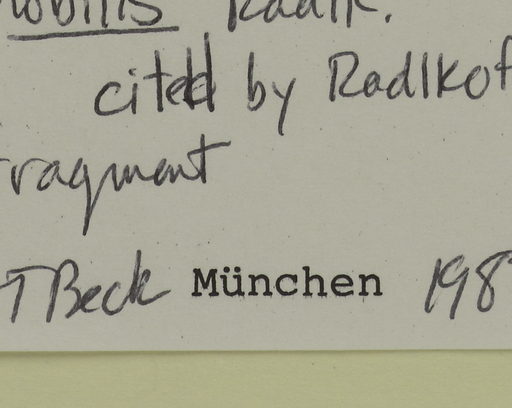 nobilis Radlk.
cited by Radlkof
fragment
T Beck München 198